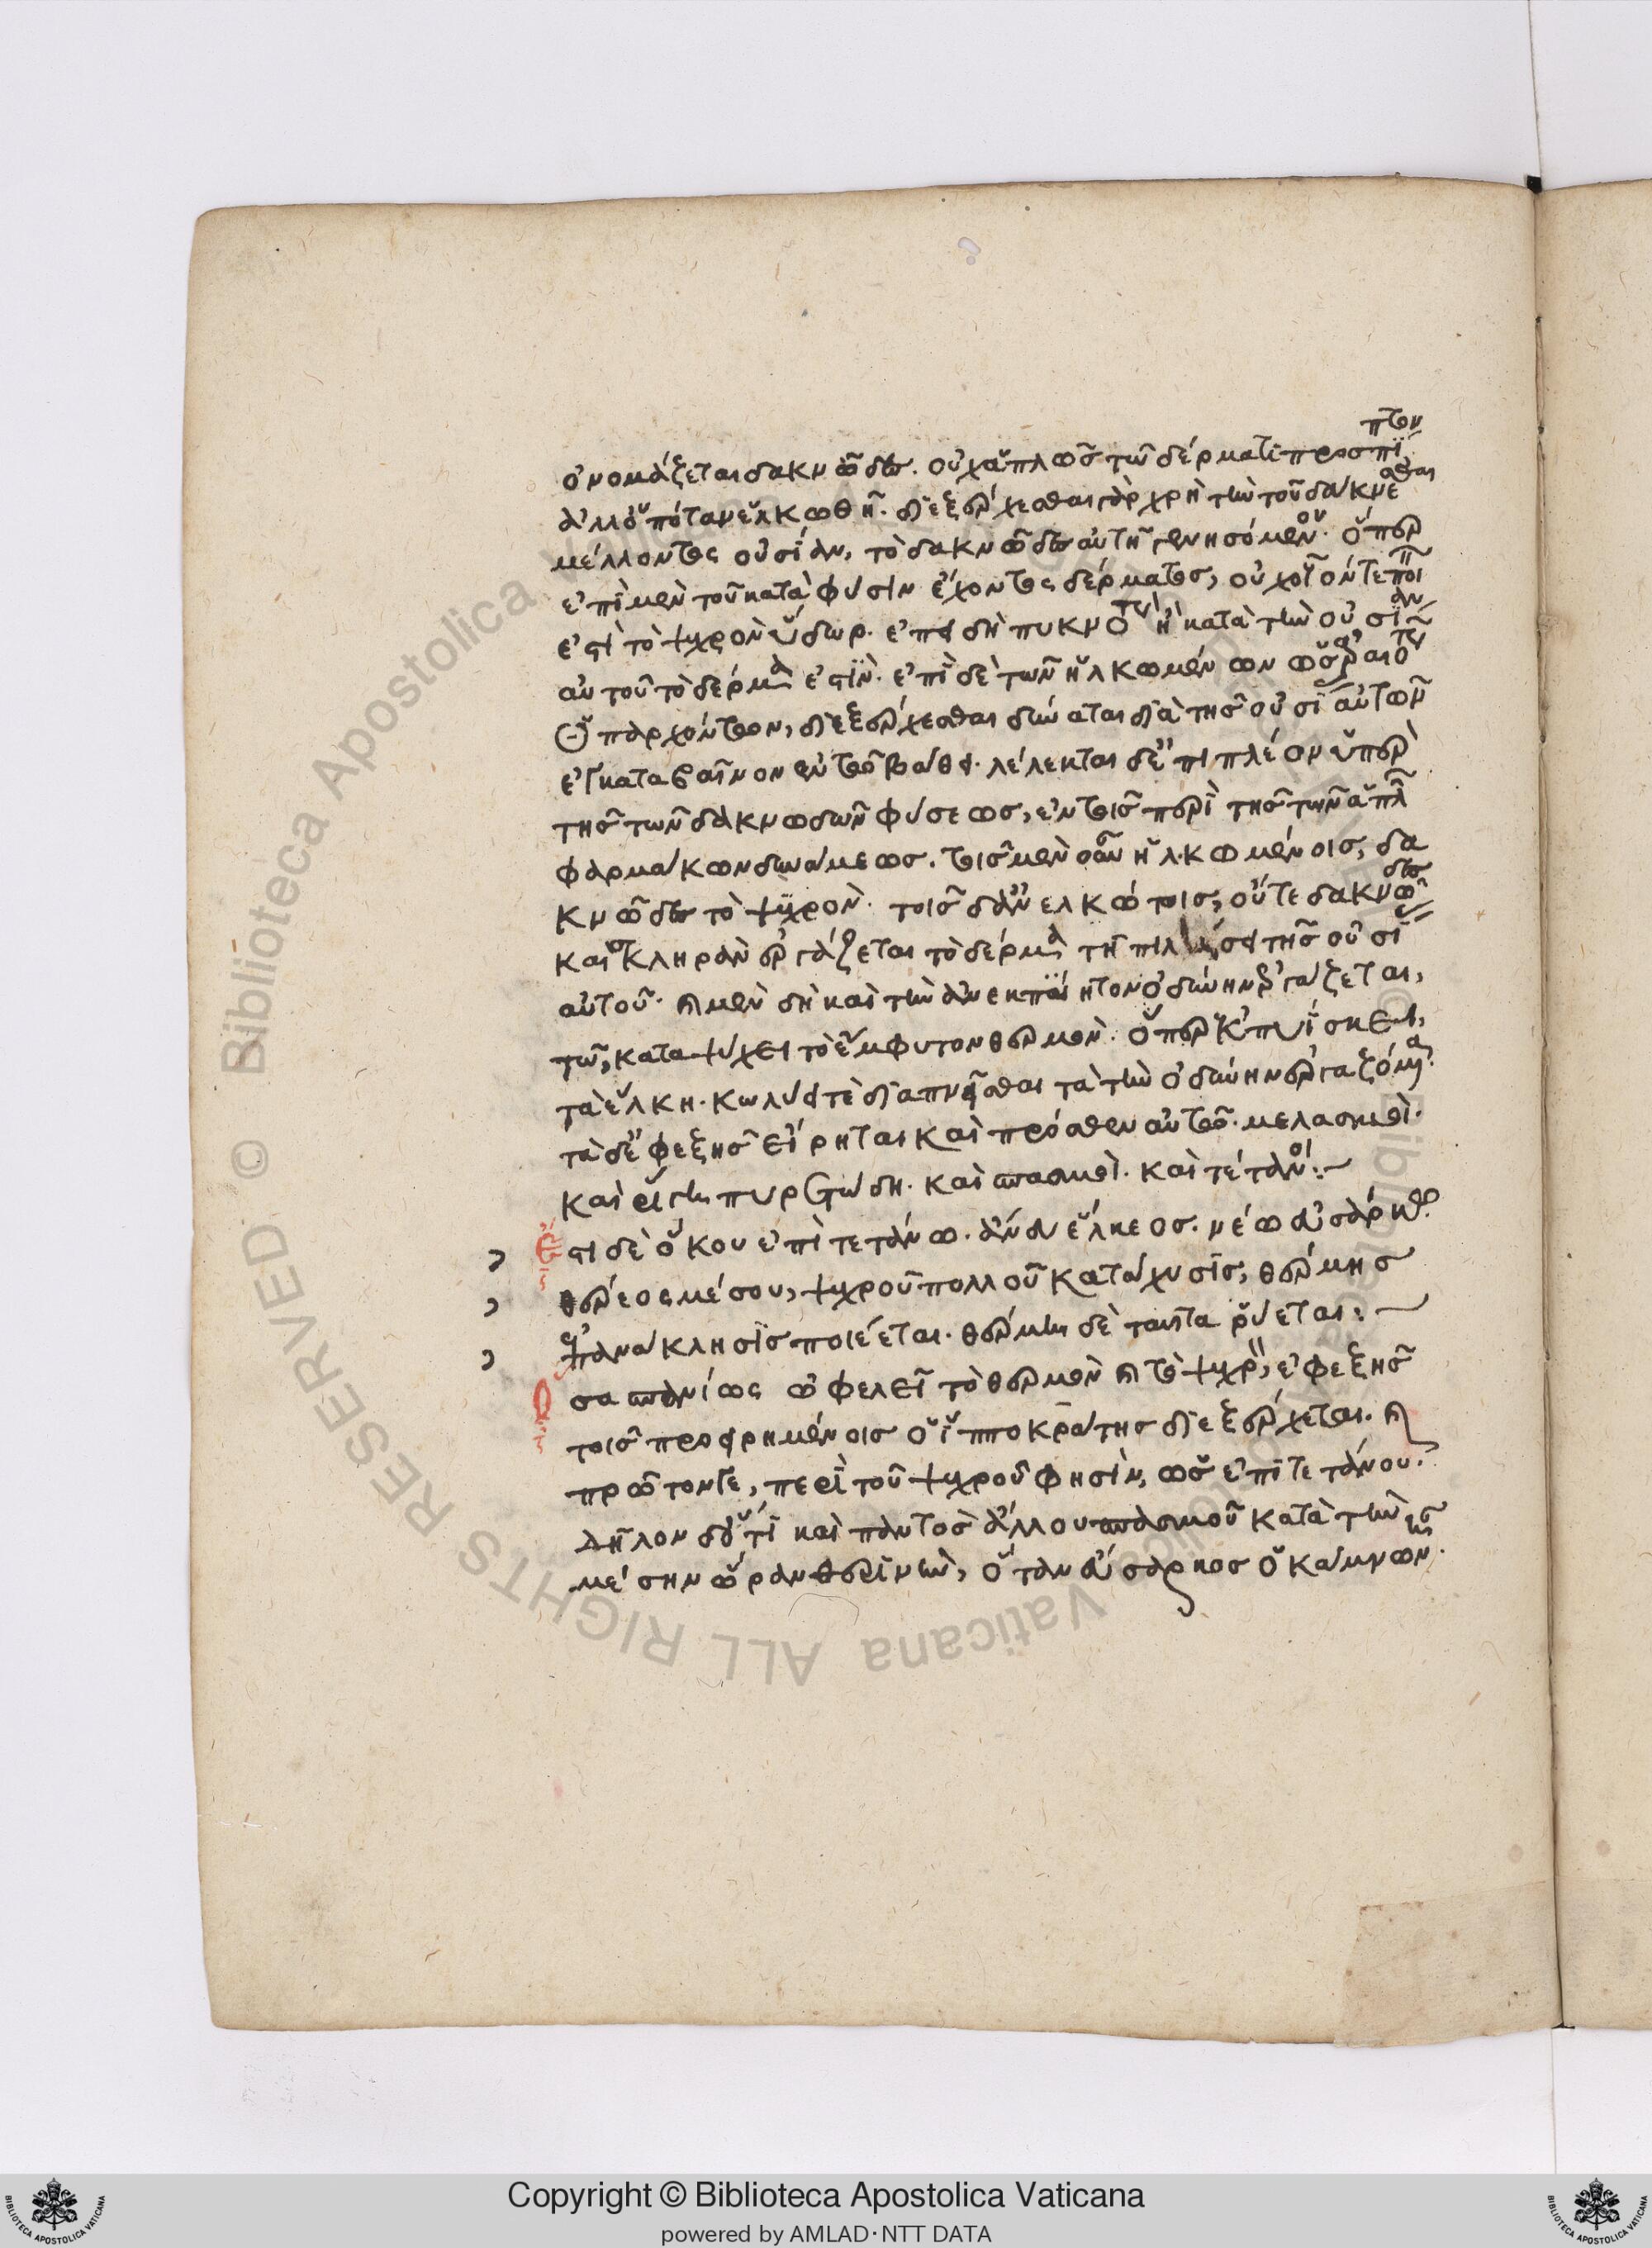 ὀνομάζεται δακνῶδες. οὐχ ἁπλῶς τῶ δέρματι προσπίπτον
ἀλλ' ὁπόταν ἑλκωθῆ. διεξέρχεσθαι γὰρ χρὴ τὴν τοῦ δάκνεσθαι
μέλλοντος οὐσίαν, τὸ δακνῶδες αὐτῆ γενησόμενον. ὅπερ
ἐπὶ μὲν τοῦ κατὰ φύσιν ἔχοντος δέρματος, οὐχ οἷόν τε ποι
ἐστὶ τὸ ψυχρὸν ὕδωρ. ἐπειδὴ πυκνότη κατὰ τὴν οὐσίαν
αὐτοῦ τὸ δέρμα ἐστίν. ἐπὶ δὲ τῶν ἡλκωμένων
ὑπαρχόντων, διεξέρχεσθαι δύναται διὰ τῆς οὐσί αὐτῶν
εἰ καταβαῖνον ἐν τῶ βάθει. λέλεκται δ' ἐπιπλέον ὑπὲρ
τῆς τῶν δακνωδῶν φύσεως, ἐν τοῖς περὶ τῆς τῶν ἁπλ
φαρμάκων δυνάμεως. τοῖς μὲν οὖν ἡλκωμένοις, δα
κνῶδες τὸ ψυχρὸν. τοῖς δ' ἀνελκώτοις, οὔτε δακνῶδες
καὶ σκληρὰν ἐργάζεται τὸ δέρμα τῆ πιλήσει τῆς οὐσί
αὐτοῦ. καὶ μὲν δὴ καὶ τὴν ἀνεκπύητον ὀδύνην ἐργάζεται,
τῶ, καταψύχει τὸ ἔμφυτον θερμὸν. ὅπερ ἐκπυΐσκει,
τὰ ἕλκη. κωλύει τὲ διαπνεῖσθαι τὰ τὴν ὀδύνην ἐργαζόμενα.
τὰ δ' ἐφεξῆς εἴρηται καὶ πρόσθεν αὐτῶ. μελασμοὶ.
καὶ ῥίγη πυρετώδη. καὶ σπασμοὶ. καὶ τέτανοι:~
Ἔστι δὲ ὅκου ἐπὶ τετάνω. ἄνευ ἕλκεος. νέω εὐσάρκω.
θέρεος μέσου, ψυχροῦ πολλοῦ κατάχυσις, θέρμης
ἐπανάκλησις ποιέεται. θέρμη δὲ ταῦτα ῥύεται:~
Ὅσα σπανίως ὠφελεῖ τὸ θερμὸν καὶ τὸ ψυχρὸν, ἐφεξῆς
τοῖς προειρημένοις ὁ ἱπποκράτης διεξέρχεται. καὶ
πρῶτόν τε, περὶ τοῦ ψυχροῦ φησὶν, ὡς ἐπὶ τετάνου.
δῆλον δ' ὅτι καὶ παντὸς ἄλλου σπασμοῦ κατὰ τὴν
μέσην ὥραν θερινὴν, ὅταν εὔσαρκος ὁ κάμνων.
Copyright © Biblioteca Apostolica Vaticana
powered by AMLAD·NTT DATA
© Biblioteca Apostolica Vaticana ALL RIGHTS RESERVED